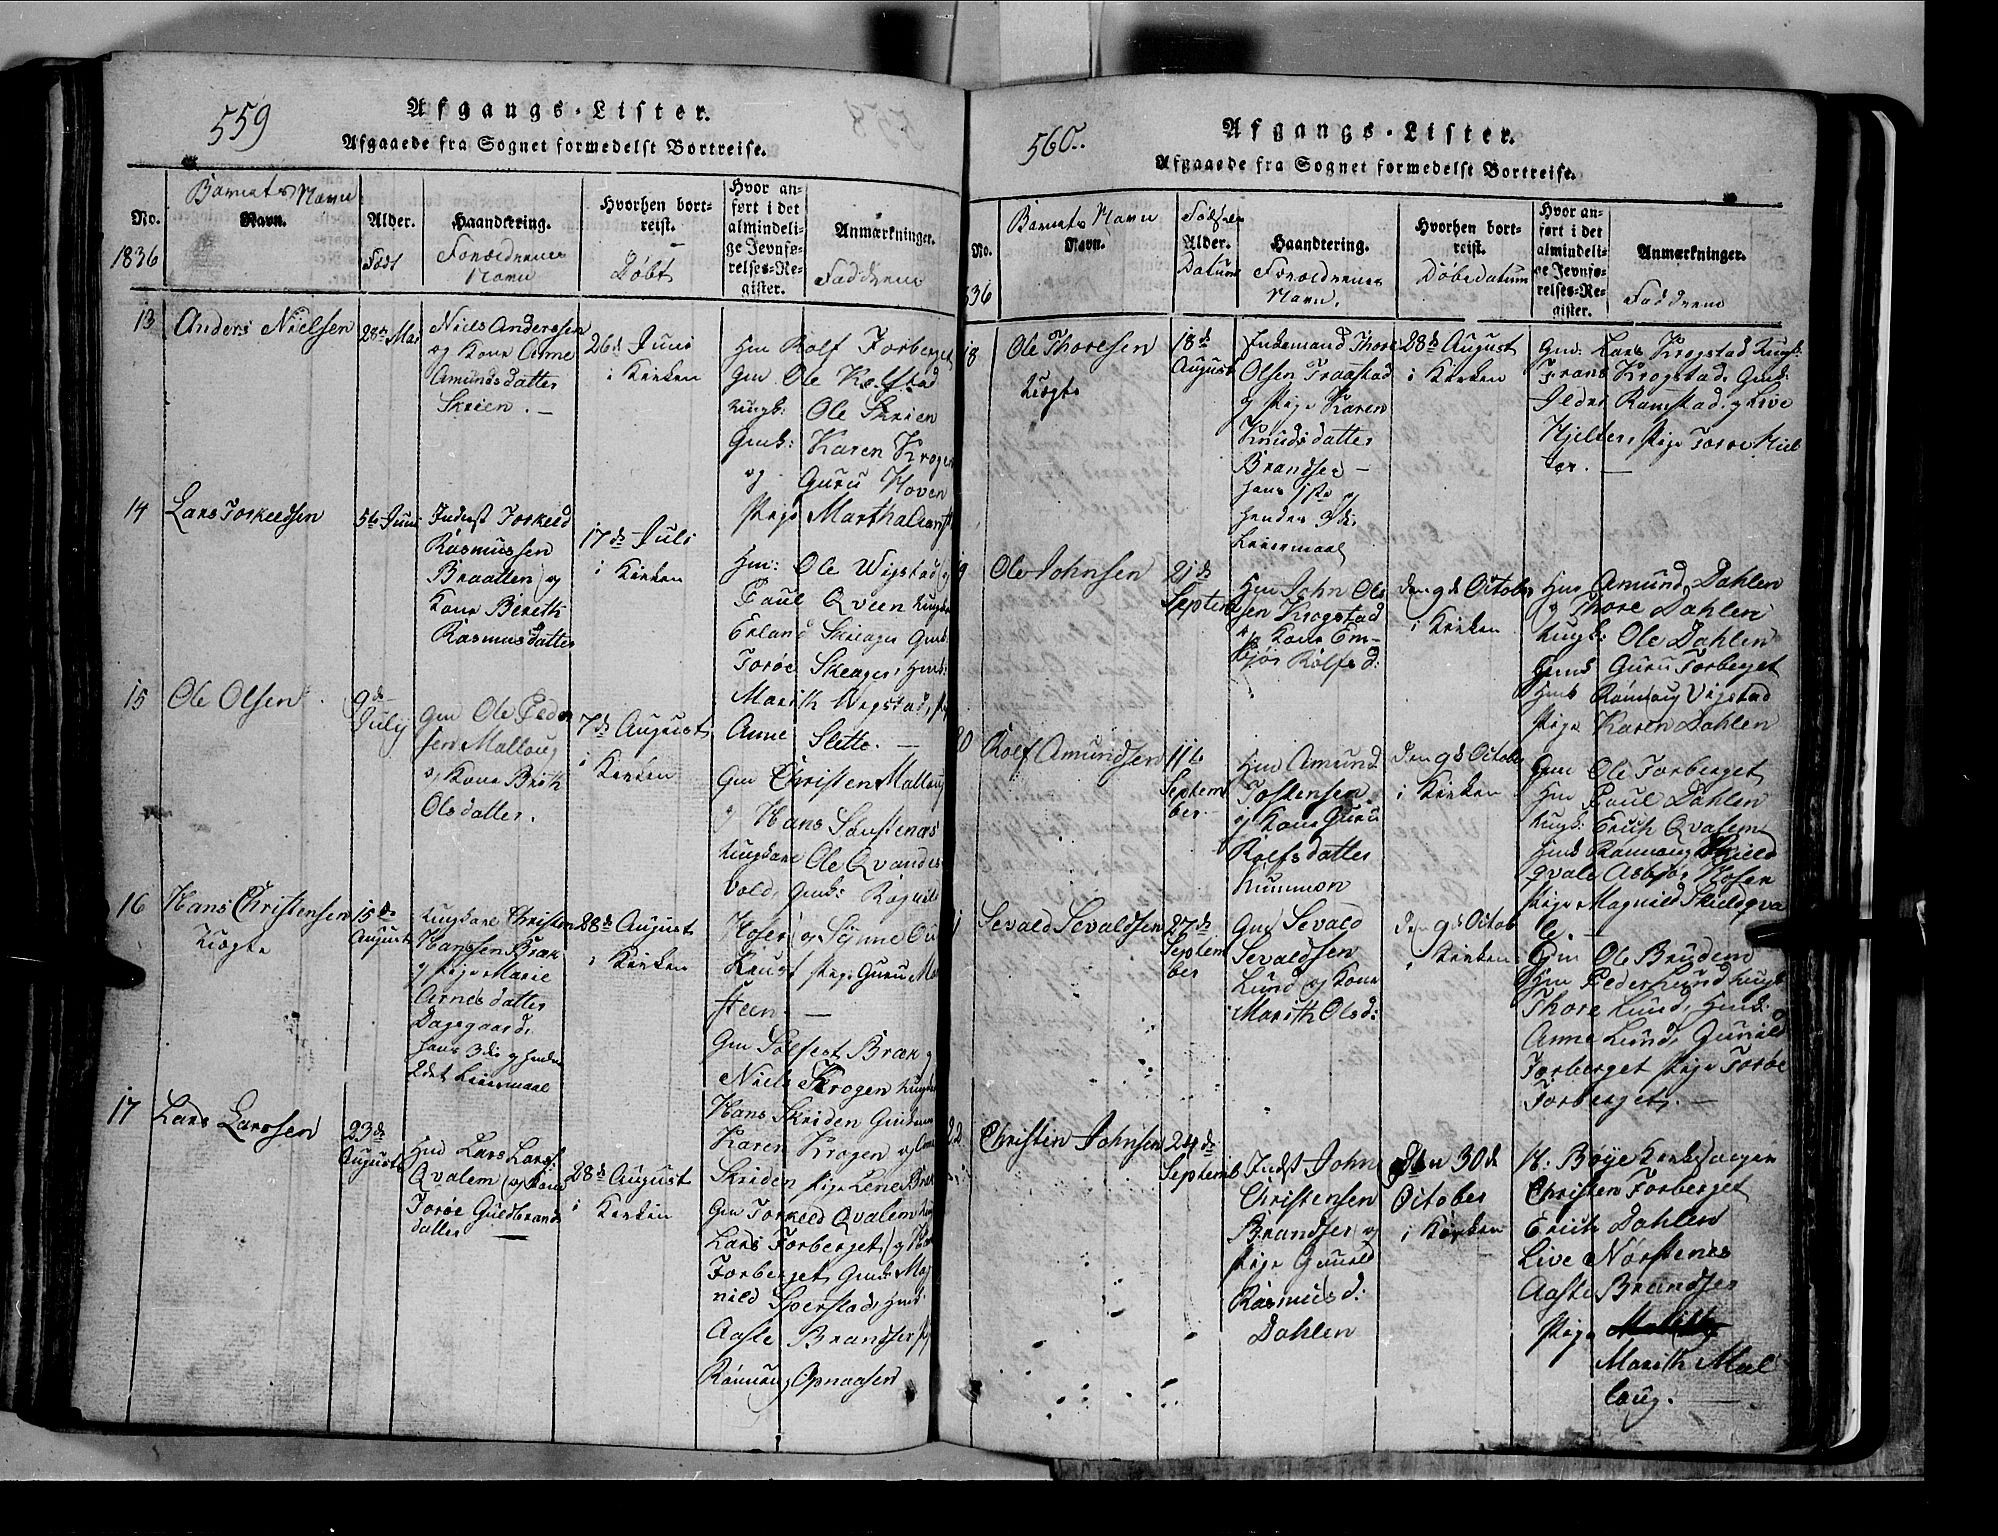 559
Afgangs-Lister.
Afgaaede fra Sognet formedelst Bortreise.
No.
1836
Barnets Navn
Navn.
Alder.
Født
Haandtering.
Forældrenes
Navn
Hvorhen bort-
reist.
Døbt
Hvor an-
ført i det
almindeli-
ge Jevnfø-
relses-Re-
gister.
Anmærkninger.
Faddrene
13
Anders Nielsen
28de Mai
Niels Anderssen
og Kone Anne
Amundsdatter
Skeien. —
26d Juni
i Kirken
Gm Rolf Forberget
Gm. Ole Kolstad
Ungk: Ole Skeien
Gmk: Karen Krogen
og Guru Hoven
Pige Martha
14
Lars Torkeldsen
5te Juni
Indrst Torkeld
Rasmussen
Braatten og
Kone Bereth
Rasmusdatter
17de Juli
i Kirken
Hm: Ole Wigstad og
Paul Qveen Ungk
Erland Skeager Gmk:
Toroe Skeager, Hmk:
Marith Wigstad, Pige
Anne Slette. —
15
Ole Olsen
9de
July
Gm Ole Peder
sen Mallaug
og Kone Brith
Olsdatter.
7de August
i Kirken
Gm Christen Mallaug
og Hans Sønstenæs
Ungkare Ole Qvandes
vold, Gmk: Ragnild
Hoser og Synne Qu
Raust Pige Guru Ma
steen. —
16
Hans Christensen
Uægte
15de
August
Ungkare Christen
Hanssen Bræk
og Pige Marie
Arnesdatter
Dagsgaard,
hans 3de og hendes
2det Leiermaal
28de August
i Kirken
Gm Solfest Bræk og
Niels Krogen Ungk
Hans Skriden
Karen Krogen og
Skriden Pige Lene Bræk
17
Lars Larssen
23de
August
Hmd Lars Larss.
Qvalem og Kone
Toroe Guldbrands
datter
28de August
i Kirken
Gm Torkeld Qvalem
Lars Forberget og
Forberget, Gmk: Mag
nild Sperstad, Hmk
Aaste Brandser, Pige
Rønnoug Opnaasen
560.
Afgangs-Lister.
Afgaaede fra Sognet formedelst Bortreise.
No.
36
Barnets Navn
Navn.
Fødsels
Alder.
Datum
Haandtering.
Forældrenes
Navn.
Hvorhen bort-
reist.
Døbedatum
Hvor an-
ført i det
almindeli-
ge Jevnfø-
relses-Re-
gister.
Anmærkninger.
Faddrene
18
Ole Thoresen
Uægte
18de
August
Inderstmand Thore
Olsen Traastad
og Pige Karen
Knudsdatter
Brandser —
hans 1ste og
hendes 3de
Leiermaal
28de August
i Kirken
Gm: Lars Krogstad Ungk:
Frans Krogstad, Gmk:
Ildri Ramstad, og Live
Hjelter, Pige Toroe Hiel
ter. —
9
Ole Johnsen
21de
Septem
Hm John Ols
sen Krogstad
og Kone Em-
bjør Rolfsd:
den 9de October
i Kirken
Hm Amund Dahlen
og Thore Dahlen
Ungk: Ole Dahlen
Hmk Guru Forberget
Hmk Rønnoug Vigstad
Pige Karen Dahlen
20
Rolf Amundsen
11te
Septem
ber.
Hm Amund
Tostensen
og Kone Guru
Rolfsdatter
Nummon
den 9de October
i Kirken
Gm Ole Forberget,
Hm Paul Dahlen
Ungk: Erich Qvalem
Hmk Rønnoug Skield
qvale Asbjør Hosen
Pige Magnild Skieldqva
le. —
1
Sevald Sevaldsen
27de
Septem
ber
Gm Sevald
Sevaldsen
Lund og Kone
Marith Olsd:
den 9de Octob
i Kirken
Gm Ole Bruden
Gm Peder Lund Ungk:
Thore Lund, Hmk:
Anne Lund, Gunild
Forberget Pige Toroe
Forberget. —
22
Christen Johnsen
24de
Septemb
Indst John
Christensen
Brandser og
Pige Gunild
Rasmusd:
Dahlen
Den 30de
October
i Kirken
H: Bøye Kirkesanger
Christen Forberget
Erich Dahlen
Live Nørstenes
Aaste Brandser
Pige
Marith Mal
laug. —